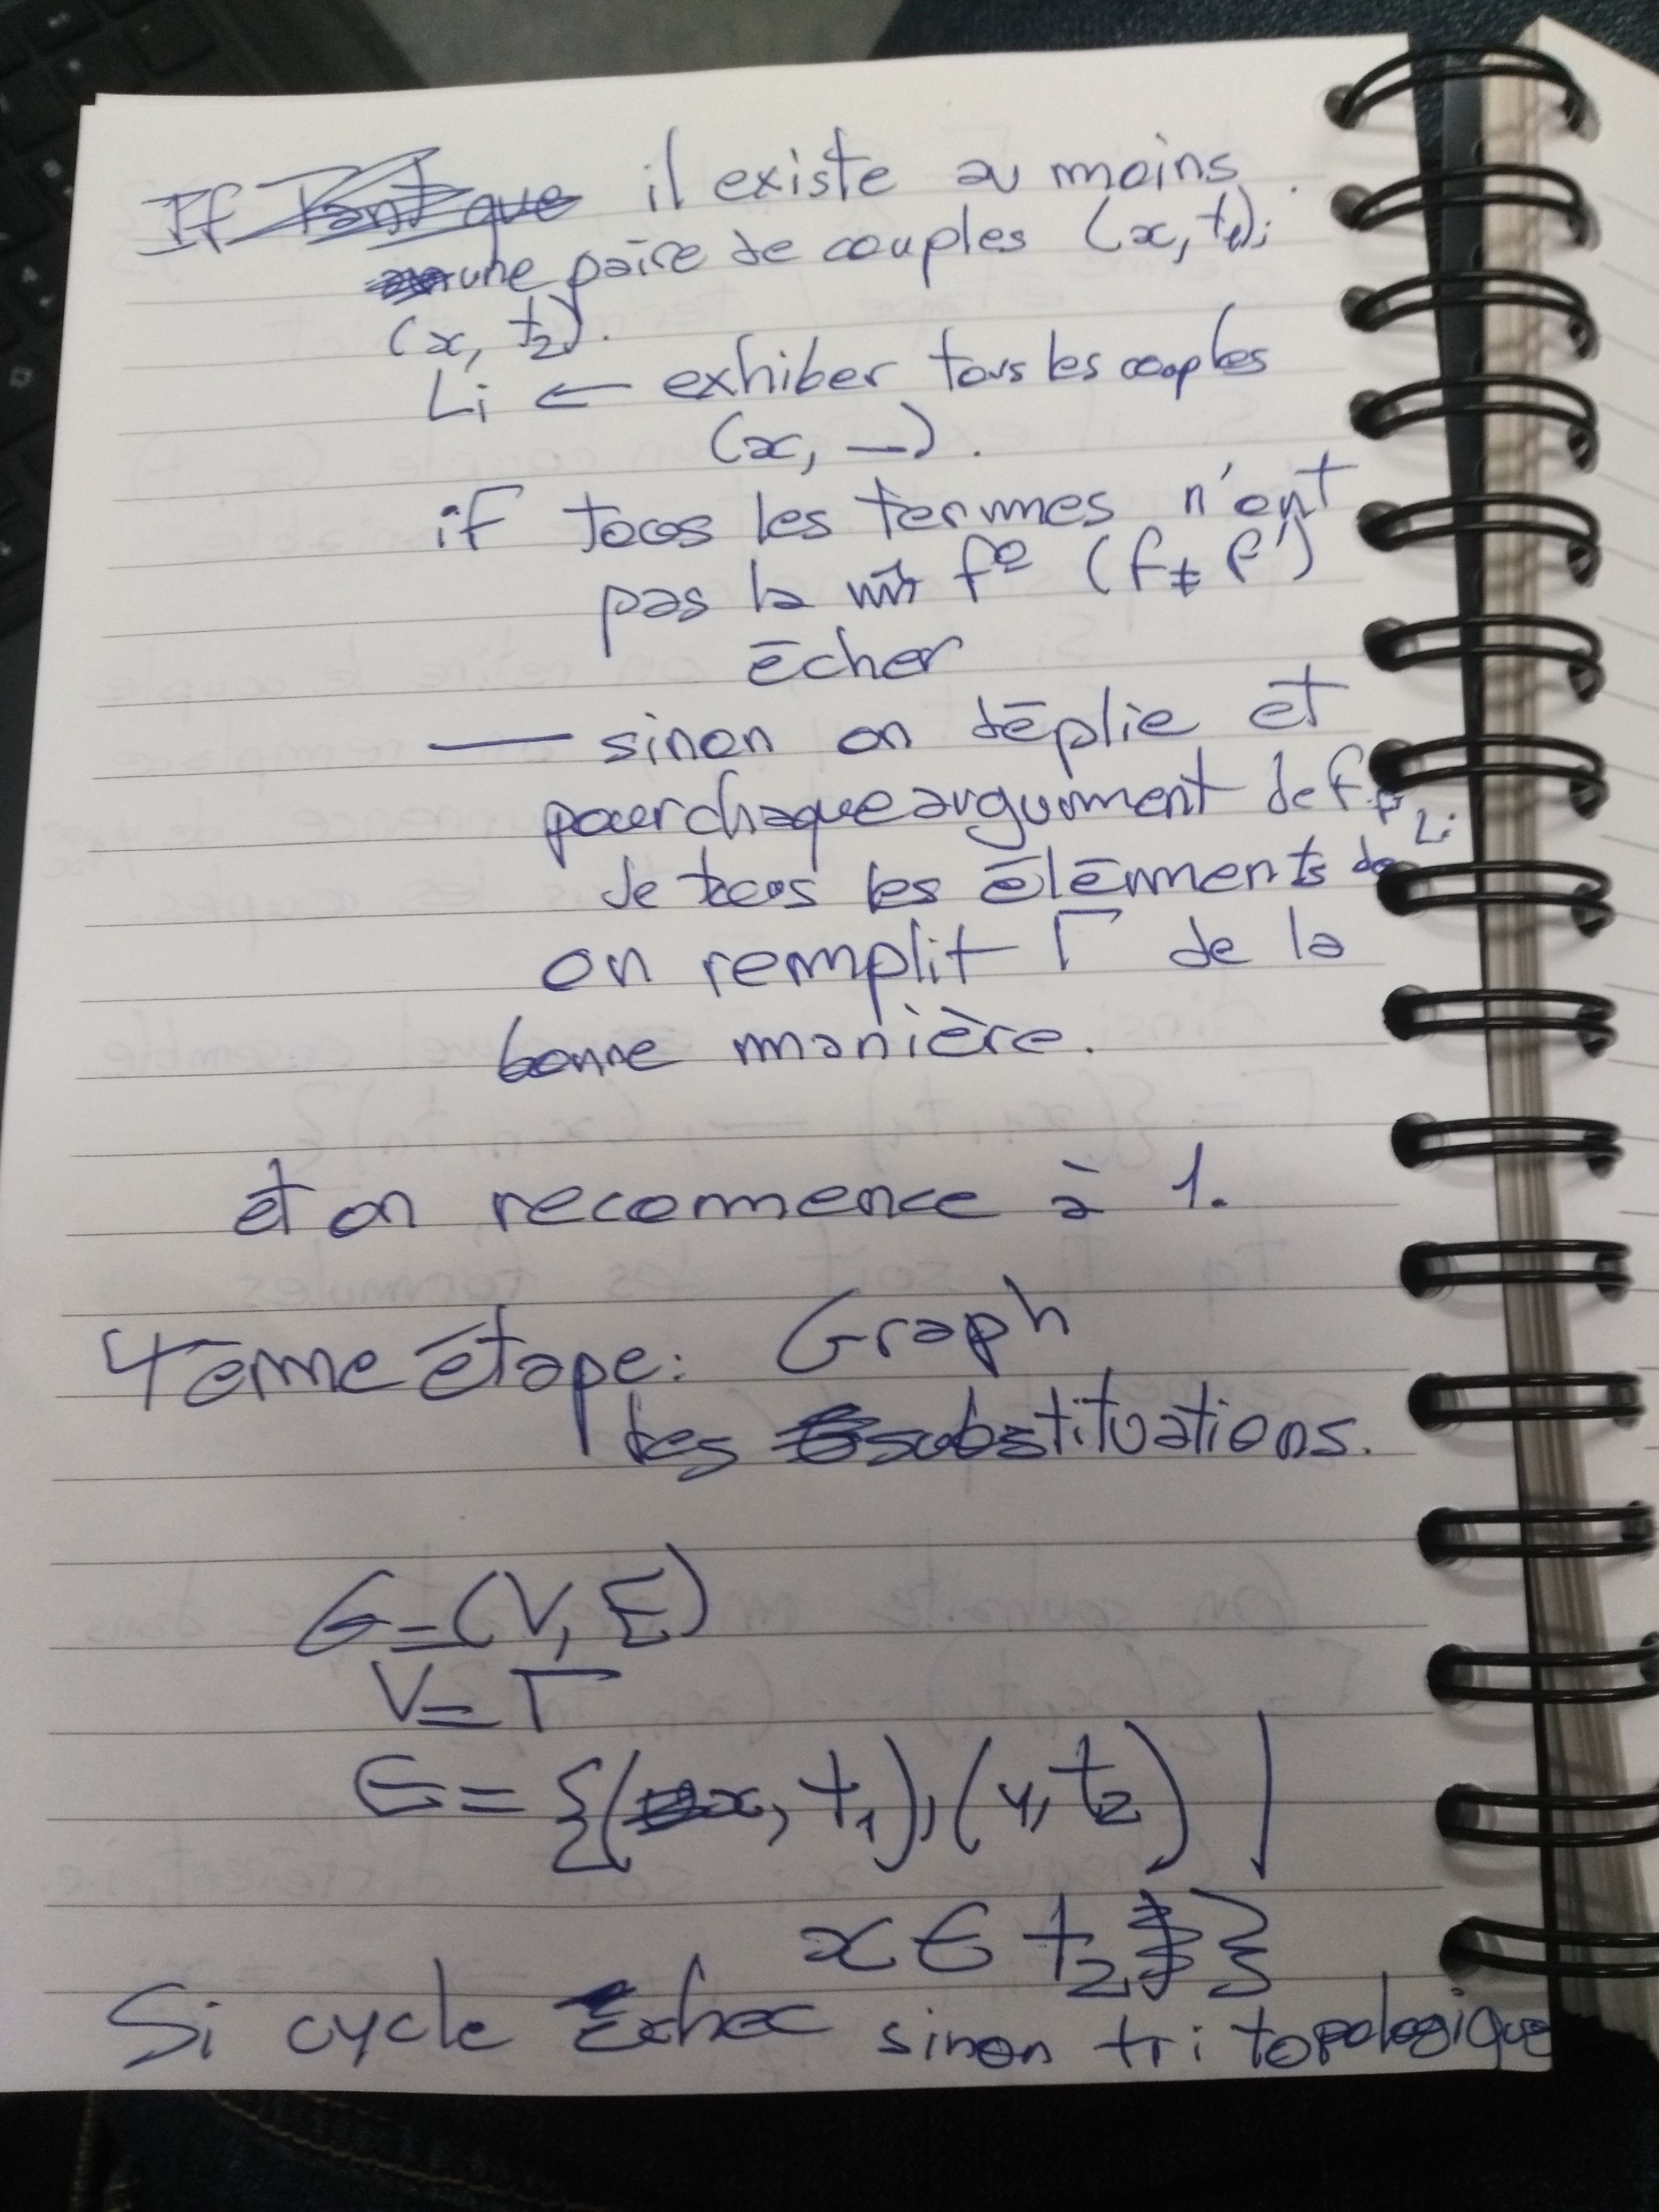 If Tant que il existe au moins
une paire de couples (x, t1);
(x, t2).
Li ← exhiber tous les couples
(x, —).
if tous les termes n'ont
pas la f° (f ≠ f')
écher
— sinon on déplie et
pour chaque argument de f
de tous les éléments de Li
on remplit Γ de la
bonne manière.
et on recommence à 1.
4ème étape: Graph
des substituations.
G=(V, E)
V= Γ
E= {(x, t1), (y, t2) |
x ∈ t2}
Si cycle Echec sinon tri topologique